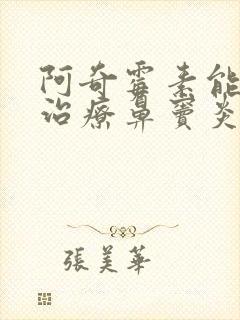 阿奇霉素能
治療鼻竇炎
張美華